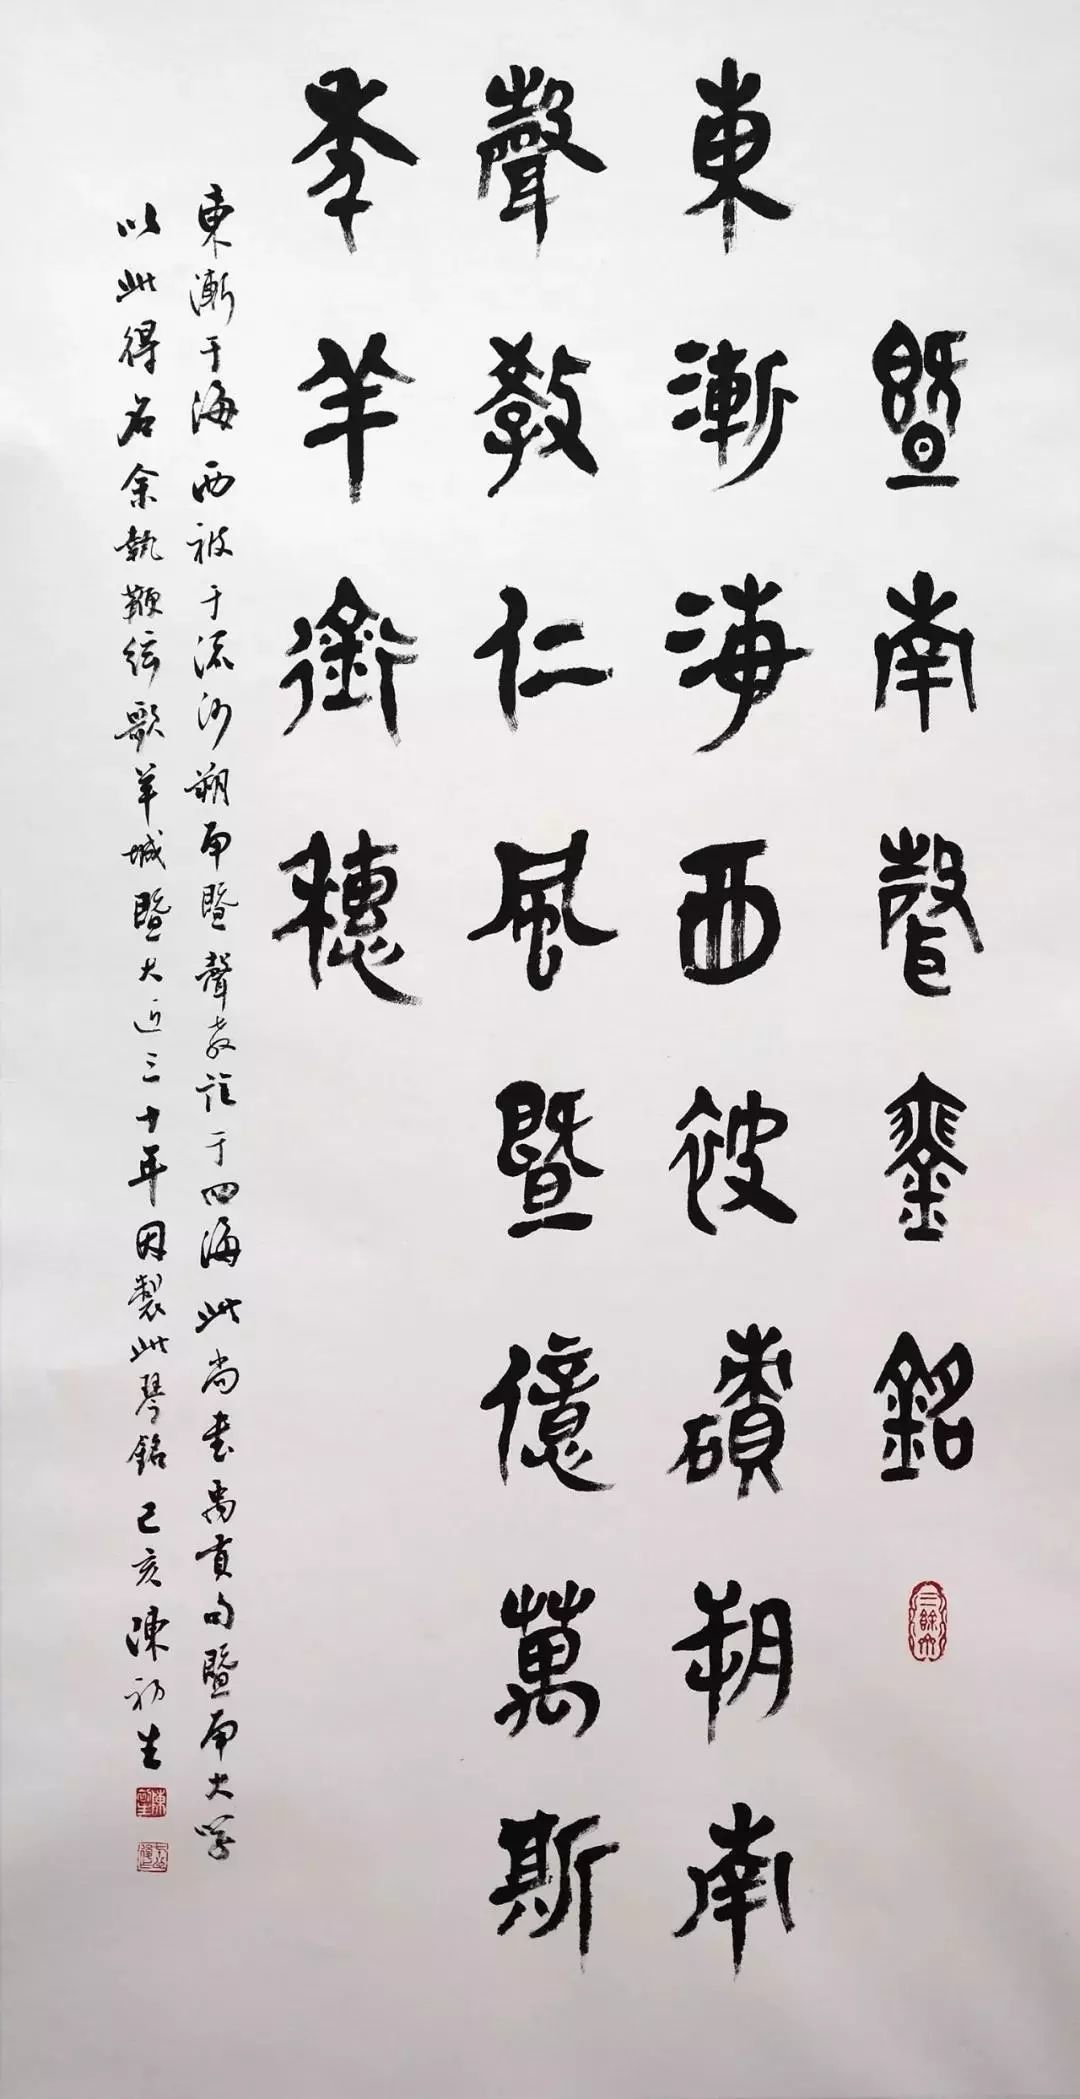 暨南琴銘
東漸海西被磧朔南
聲教仁風暨億萬斯
年羊銜穗
東漸于海西被于流沙朔南暨聲教訖于四海此尚書禹貢句暨南大學
以此得名余執鞭絃歌羊城暨大近三十年因製此琴銘己亥陳初生
陳初生